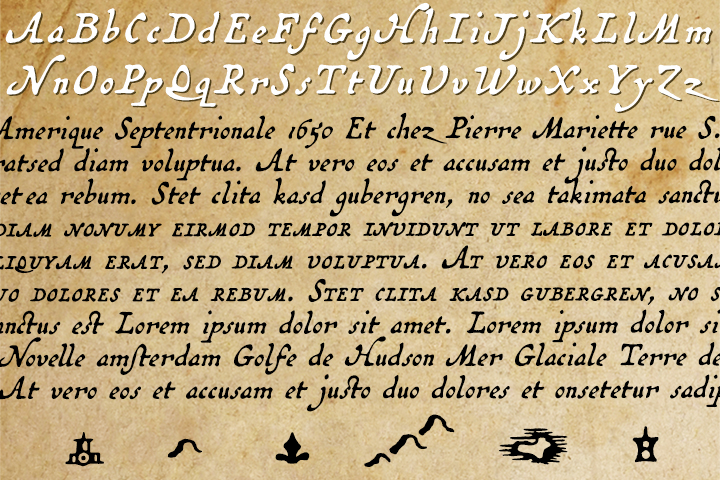 AaBbCcDdEeFfGgHhIiJjKkLlMm
NnOoPpQqRrSsTtUuUvWwXxYyZz
Amerique Septentrionale 1650 Et chez Pierre Mariette rue S.
ratsed diam voluptua. At vero eos et accusam et justo duo dol
et ea rebum. Stet clita kasd gubergren, no sea takimata sanctu
DIAM NONUMY EIRMOD TEMPOR INVIDUNT UT LABORE ET DOLO
LIQUYAM ERAT, SED DIAM VOLUPTUA. AT VERO EOS ET ACUSA
UO DOLORES ET EA REBUM. STET CLITA KASD GUBERGREN, NO S
anctus est Lorem ipsum dolor sit amet. Lorem ipsum dolor si
Novelle amsterdam Golfe de Hudson Mer Glaciale Terre de
At vero eos et accusam et justo duo dolores et onsetetur sadip